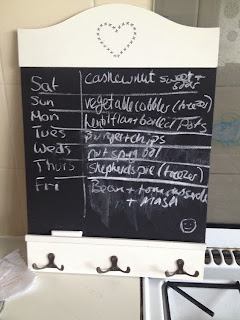 Sat cashewnut sweet + sour
Sun vegetable cobbler (freezer)
Mon lentil flan + boiled pots
Tues Burger + chips
Weds nut spag bol
Thurs shepherds pie (freezer)
Fri Bean + tom casserole
+ MASH